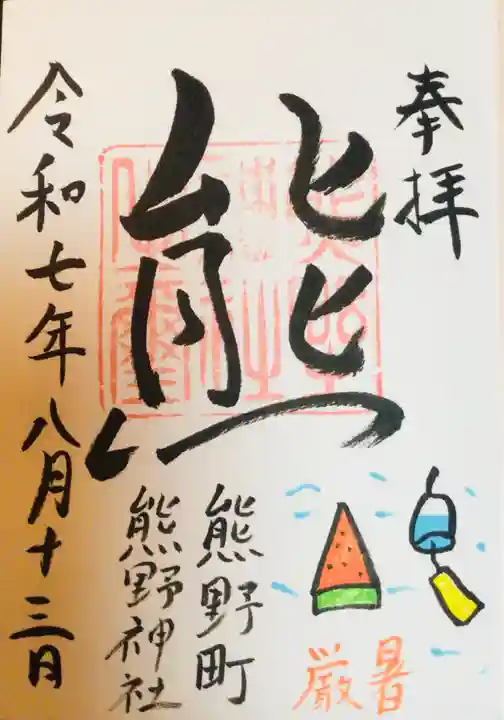 奉拝
熊
熊野町
熊野神社
厳暑
令和七年八月十三日